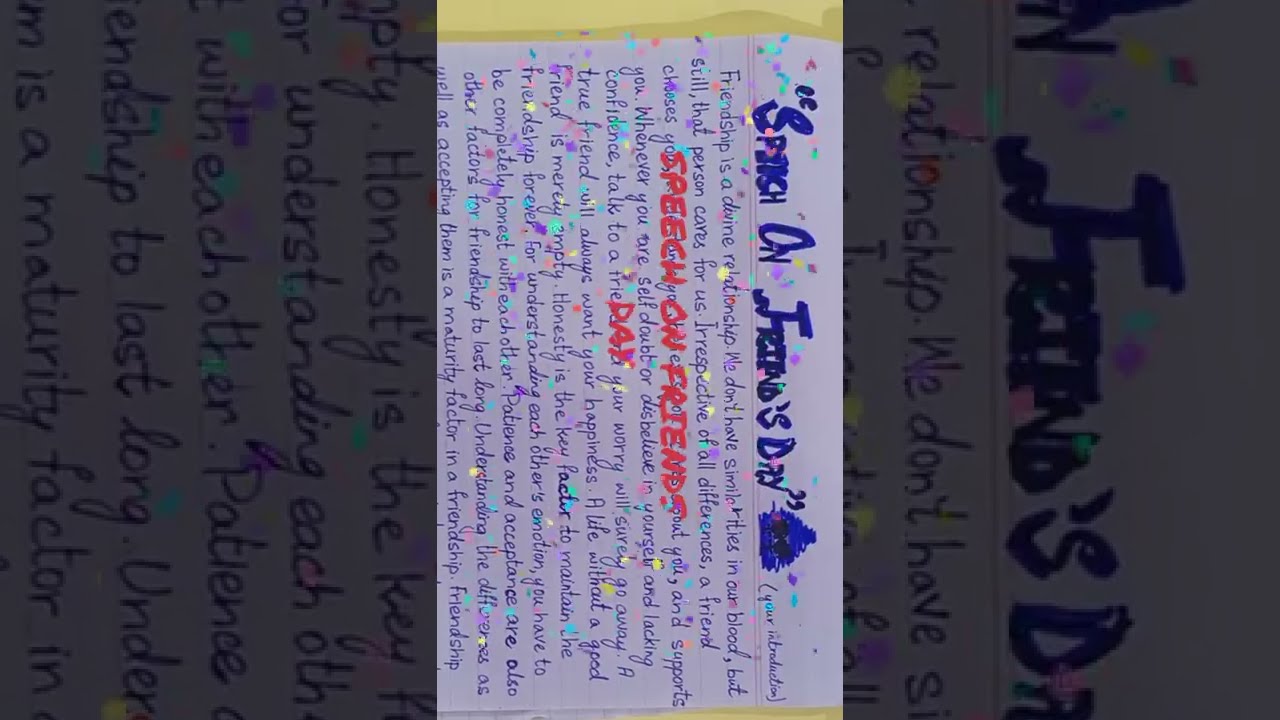 "SPEECH ON FRIEND'S DAY"
(your introduction)
Friendship is a divine relationship. We don't have similarities in our blood, but
still, that person cares for us. Irrespective of all differences, a friend
chooses you, and supports
you. Whenever you are self doubt or disbelieve in yourself and lacking
confidence, talk to a your worry will surely go away. A
true friend will always want your happiness. A life without a good
friend is merely empty. Honesty is the key factor to maintain the
friendship forever. For understanding each other's emotion, you have to
be completely honest with each other. Patience and acceptance are also
other factors for friendship to last long. Understanding the differences as
well as accepting them is a maturity factor in a friendship. Friendship
SPEECH ON FRIENDS
DAY